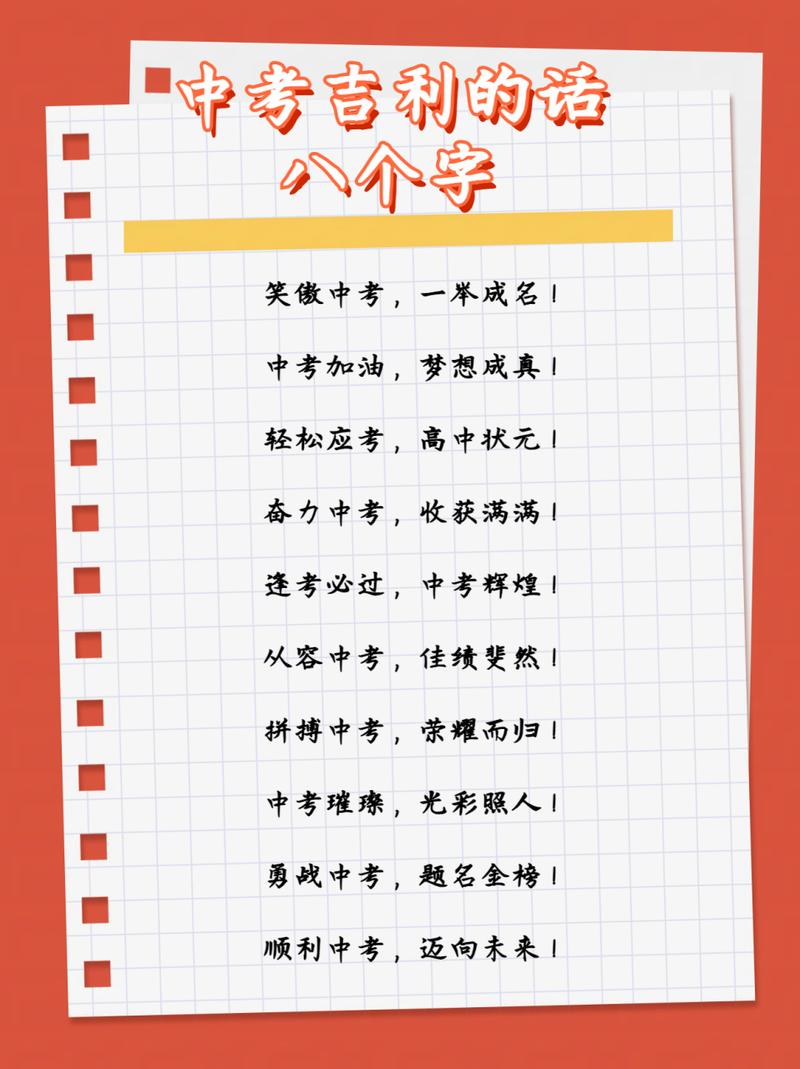 中考吉利的话
八个字
笑傲中考，一举成名！
中考加油，梦想成真！
轻松应考，高中状元！
奋力中考，收获满满！
逢考必过，中考辉煌！
从容中考，佳绩斐然！
拼搏中考，荣耀而归！
中考璀璨，光彩照人！
勇战中考，题名金榜！
顺利中考，迈向未来！